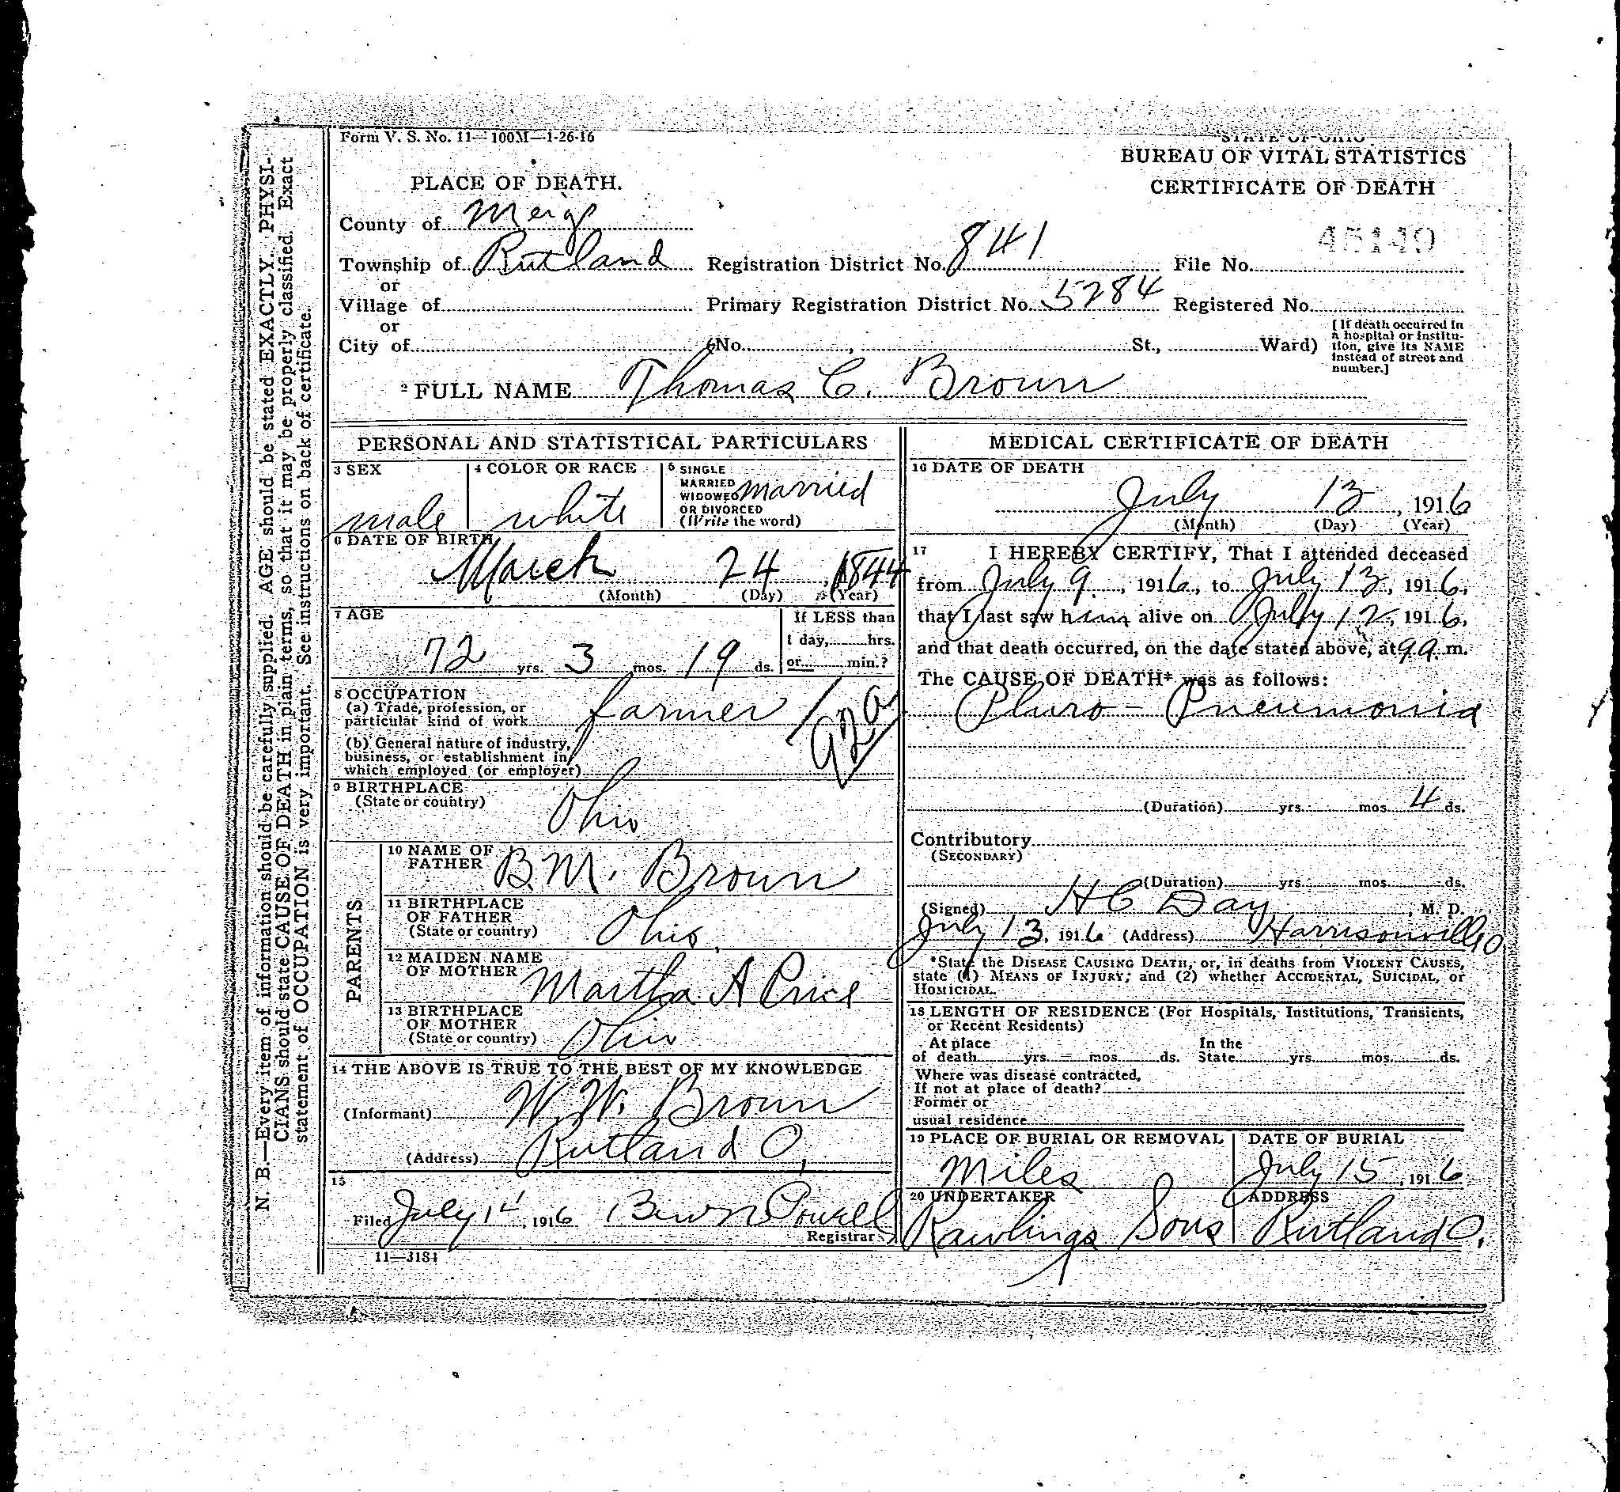 Form V. S. No. 11—100M—1-26-16
STATE OF OHIO
BUREAU OF VITAL STATISTICS
CERTIFICATE OF DEATH
PLACE OF DEATH.
County of Meigs
45149
Township of Rutland Registration District No. 841 File No.
or
Village of Primary Registration District No. 5284 Registered No.
or
City of (No. , St., Ward)
[If death occurred in
a hospital or institu-
tion, give its NAME
instead of street and
number.]
2 FULL NAME Thomas C. Brown
PERSONAL AND STATISTICAL PARTICULARS
3 SEX
male
4 COLOR OR RACE
white
5 SINGLE
MARRIED
WIDOWED
OR DIVORCED
(Write the word)
married
6 DATE OF BIRTH
March 24, 1844
(Month) (Day) (Year)
7 AGE
72 yrs. 3 mos. 19 ds.
If LESS than
1 day, hrs.
or min.?
8 OCCUPATION
(a) Trade, profession, or
particular kind of work farmer
92a
(b) General nature of industry,
business, or establishment in
which employed (or employer)
9 BIRTHPLACE
(State or country)
Ohio
PARENTS
10 NAME OF
FATHER B.M. Brown
11 BIRTHPLACE
OF FATHER
(State or country) Ohio.
12 MAIDEN NAME
OF MOTHER Martha A Price
13 BIRTHPLACE
OF MOTHER
(State or country) Ohio
14 THE ABOVE IS TRUE TO THE BEST OF MY KNOWLEDGE
(Informant) W.W. Brown
(Address) Rutland O,
15
Filed July 14, 1916 Powell
Registrar
11—3184
MEDICAL CERTIFICATE OF DEATH
16 DATE OF DEATH
July 13, 1916
(Month) (Day) (Year)
17 I HEREBY CERTIFY, That I attended deceased
from July 9, 1916, to July 13, 1916,
that I last saw him alive on July 12, 1916,
and that death occurred, on the date stated above, at 9 a. m.
The CAUSE OF DEATH* was as follows:
Pluro-Pneumonia
(Duration) yrs. mos. 4 ds.
Contributory
(SECONDARY)
(Duration) yrs. mos. ds.
(Signed) H C Day, M. D.
July 13, 1916 (Address) Harrisonville O
*State the DISEASE CAUSING DEATH, or, in deaths from VIOLENT CAUSES,
state (1) MEANS OF INJURY; and (2) whether ACCIDENTAL, SUICIDAL, or
HOMICIDAL.
18 LENGTH OF RESIDENCE (For Hospitals, Institutions, Transients,
or Recent Residents)
At place In the
of death yrs. mos. ds. State yrs. mos. ds.
Where was disease contracted,
If not at place of death?
Former or
usual residence
19 PLACE OF BURIAL OR REMOVAL
Miles
DATE OF BURIAL
July 15, 1916
20 UNDERTAKER
Rawlings Sons
ADDRESS
Rutland O.
N. B.—Every item of information should be carefully supplied. AGE should be stated EXACTLY. PHYSI-
CIANS should state CAUSE OF DEATH in plain terms, so that it may be properly classified. Exact
statement of OCCUPATION is very important. See instructions on back of certificate.